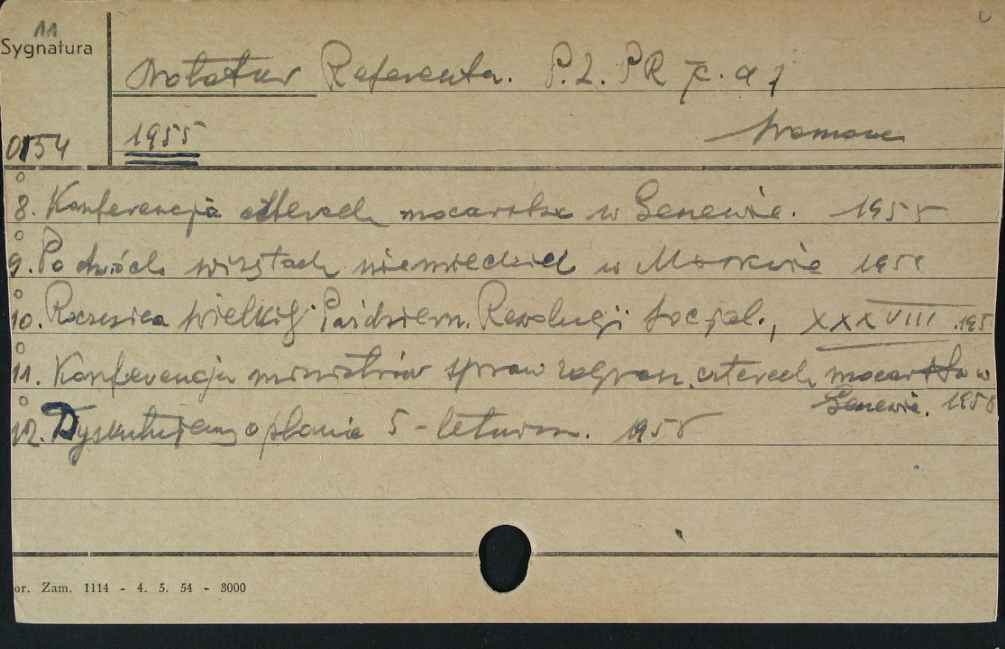 11
Sygnatura
Notatnik Referenta. P.Z.P.R
0154
1955
8. Konferencja czterech mocarstw w Genewie. 1955
9. Po dwóch wizytach niemieckich w Moskwie 1955
10. Rocznica Wielkiej Paździer. Rewolucji Socjal., XXXVIII .195
11. Konferencja ministrów spraw zagran. czterech mocarstw w
Genewie. 1955
12. Dyskutujemy o planie 5-letnim. 1955
or. Zam. 1114 - 4. 5. 54 - 3000